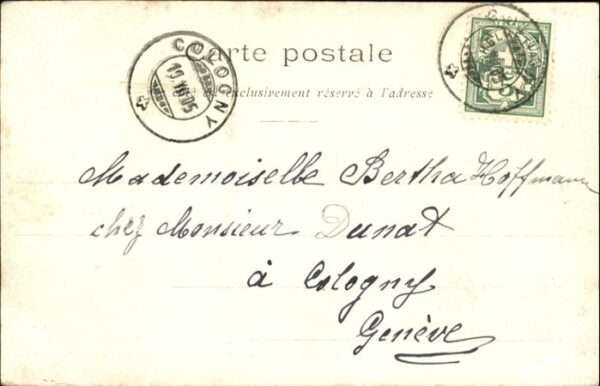 Carte postale
COLOGNY
exclusivement réservé à l'adresse
Mademoiselle Bertha Hoffmann
chez Monsieur Dunat
à Cologny
Genève